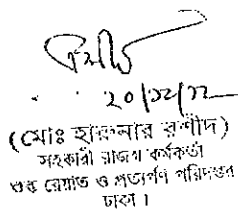 ২০/১২/২২
(মোঃ হারুনার রশীদ)
সহকারী রাজস্ব কর্মকর্তা
শুল্ক রেয়াত ও প্রত্যর্পণ পরিদপ্তর
ঢাকা।